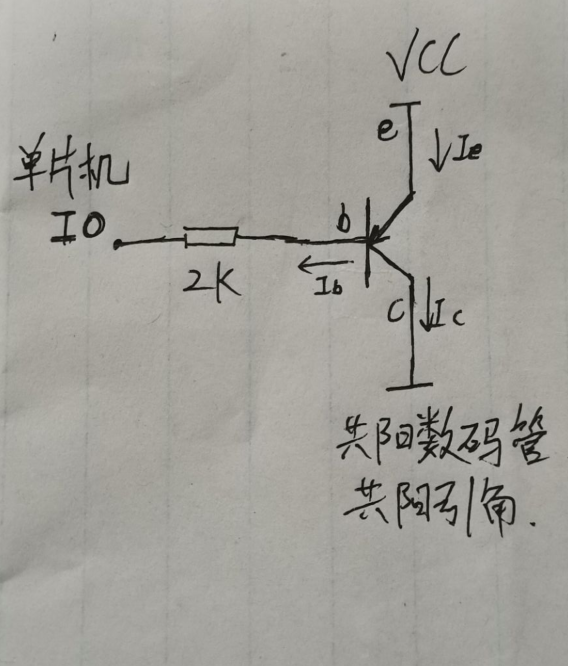 VCC
e
Ie
单片机
IO
b
2K
Ib
c
Ic
共阳数码管
共阳引角.